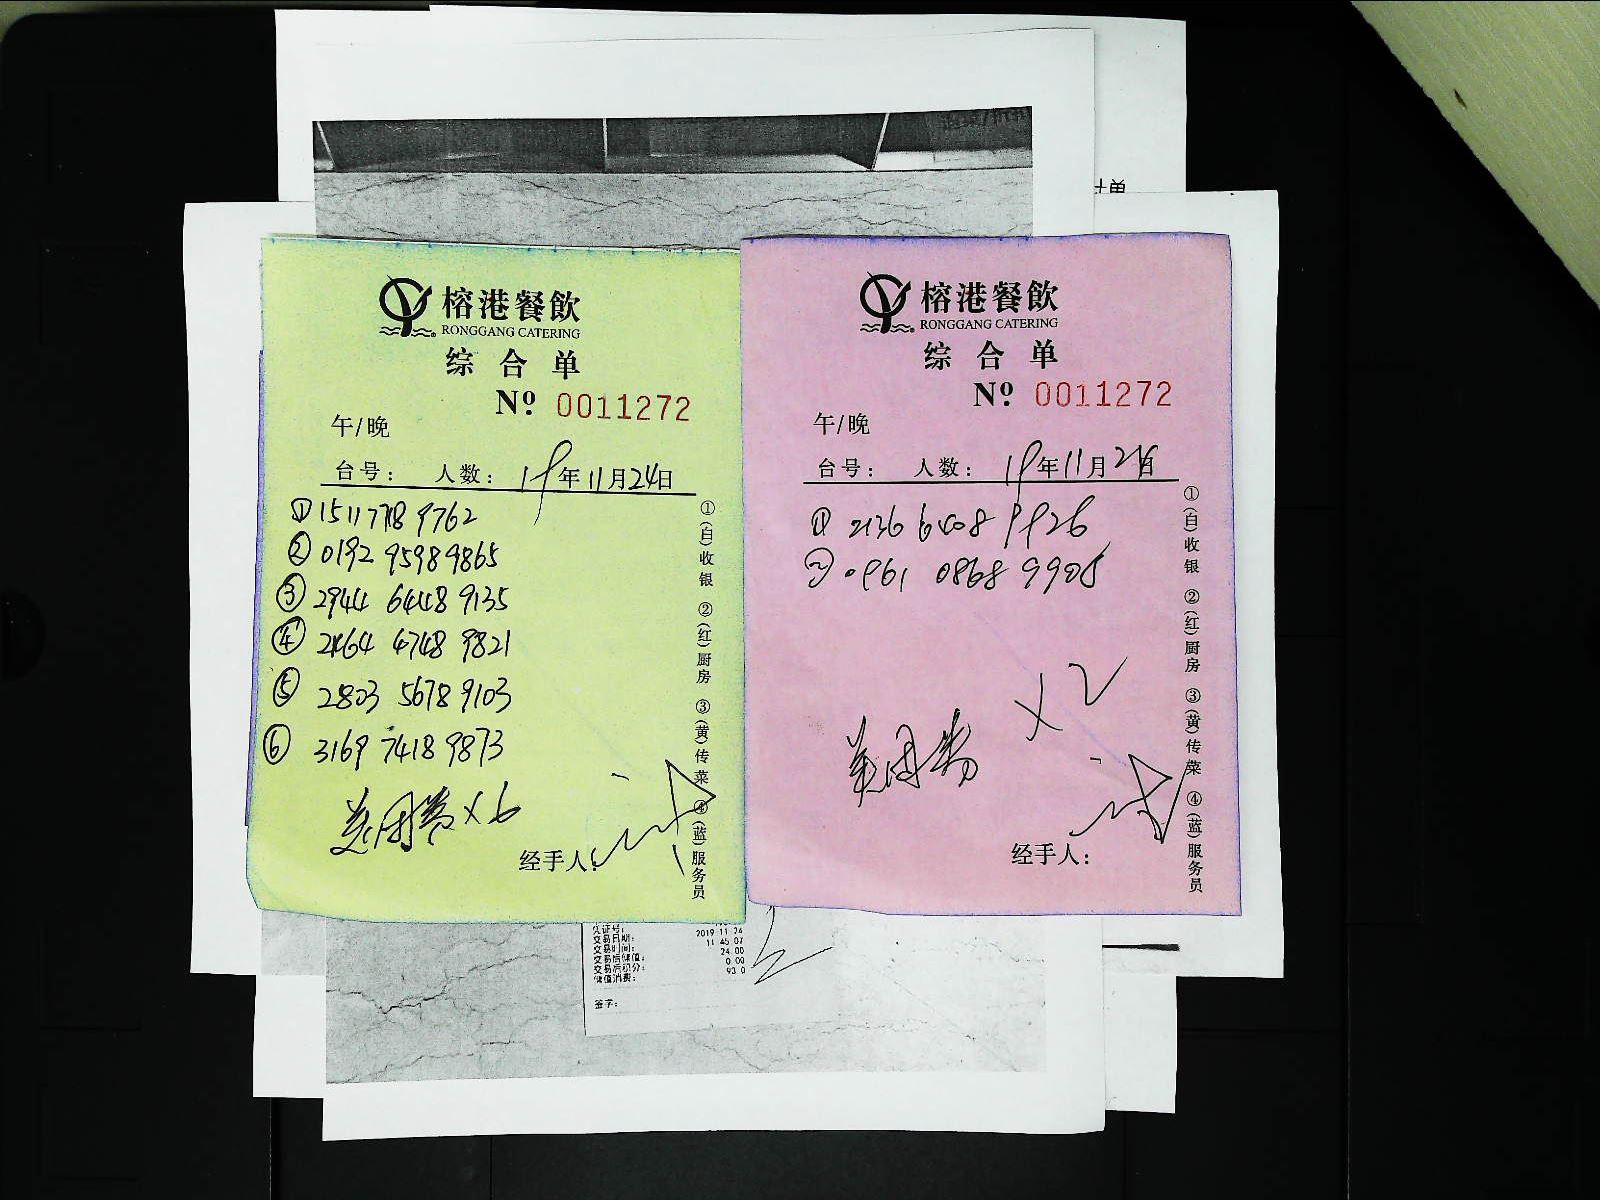 计单
榕港餐飲
RONGGANG CATERING
综合单
Nº 0011272
午/晚
台号： 人数： 19年11月24日
① 1511 7718 9762
② 0192 9598 9865
③ 2944 6448 9135
④ 2464 4748 9821
⑤ 2803 5678 9103
⑥ 3169 7418 9873
美团券×6
经手人：
①(白)收银 ②(红)厨房 ③(黄)传菜 ④(蓝)服务员
榕港餐飲
RONGGANG CATERING
综合单
Nº 0011272
午/晚
台号： 人数： 19年11月24日
① 2136 6408 9926
② 0961 0868 9905
美团券 ×2
经手人：
①(白)收银 ②(红)厨房 ③(黄)传菜 ④(蓝)服务员
凭证号：
交易日期： 2019 11 24
交易时间： 11 45 07
交易后储值： 24 00
交易后积分： 0 00
储值消费： 93 0
签字：